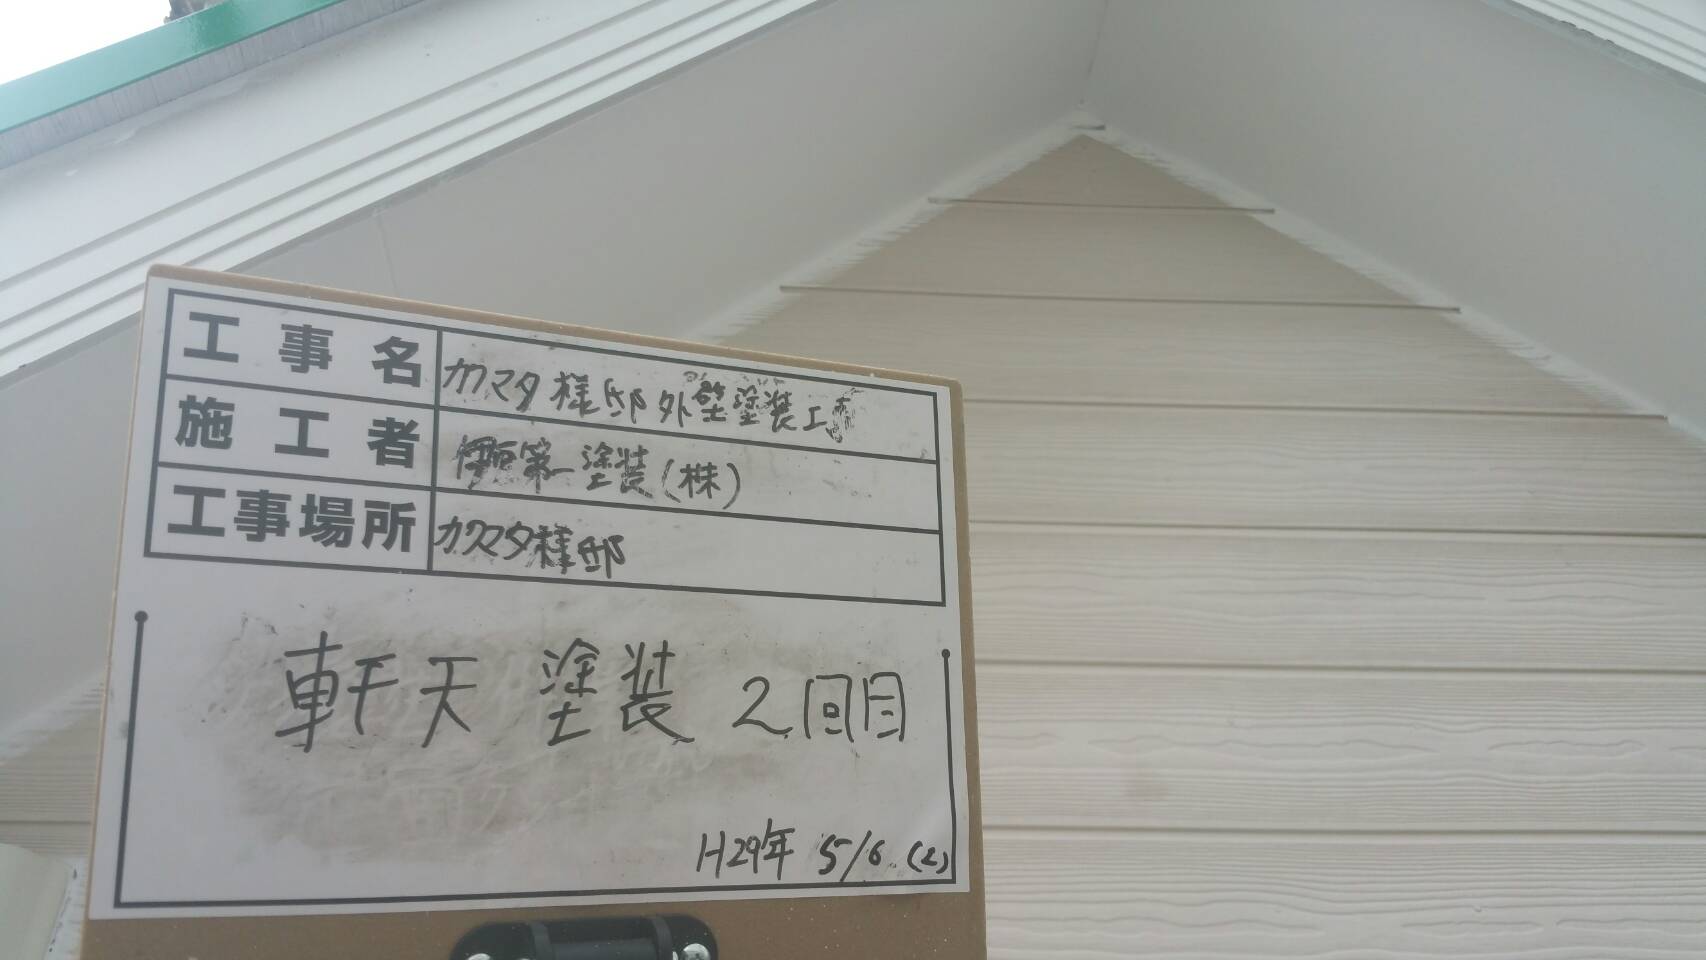 工事名 カワマタ様邸外壁塗装工事
施工者 伊都第一塗装(株)
工事場所 カワマタ様邸
軒天 塗装 2回目
H29年 5/6 (2)